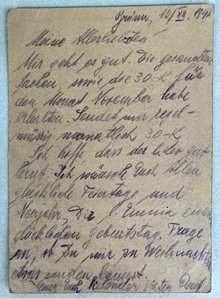 Brünn, 16/XII. 194
Meine Allerliebsten!
Mir geht es gut. Die gesandten
Sachen, sowie die 30 K für
den Monat November habe
erhalten. Sendet mir regel-
mässig monatlich 30 K
Ich hoffe dass der lieber gut
lernt. Ich wünsche Euch Allen
glückliche Feiertage und
Neujahr, Dir l. Emma einen
glücklichen Geburtstag. Frage
an, ob Du mir zu Weihnachten
etwas bringen kannst.
Euer